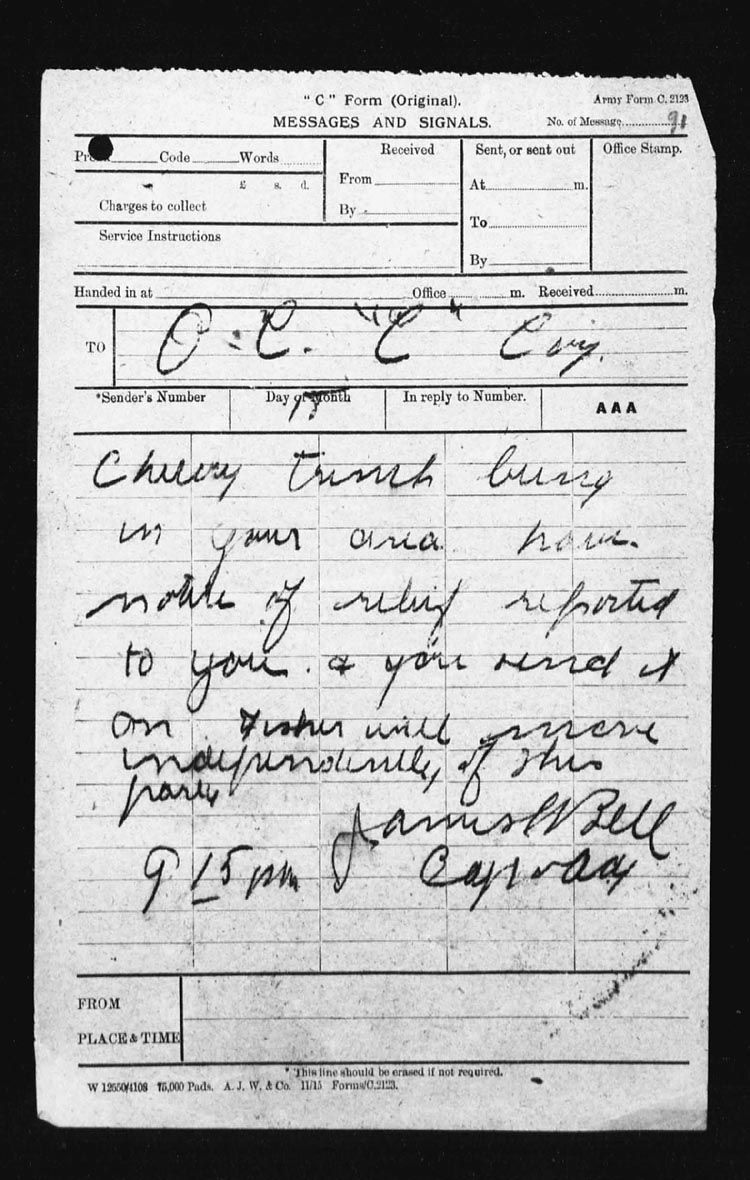 "C" Form (Original).
Army Form C. 2123
MESSAGES AND SIGNALS.
No. of Message 91
Code Words
Received
Sent, or sent out
Office Stamp.
£ s. d.
Charges to collect
From
By
At m.
To
By
Service Instructions
Handed in at Office m. Received m.
TO
O.C. "C" Coy.
*Sender's Number
Day of Month
In reply to Number.
AAA
15
Cherry trench being
in your area have
notice of relief reported
to you & you send it
on Fisher will move
independently of this
party
James W Bell
9 15 pm Capt & Adj
FROM
PLACE & TIME
* This line should be erased if not required.
W 12550/4108 75,000 Pads. A. J. W. & Co. 11/15 Forms/C.2123.